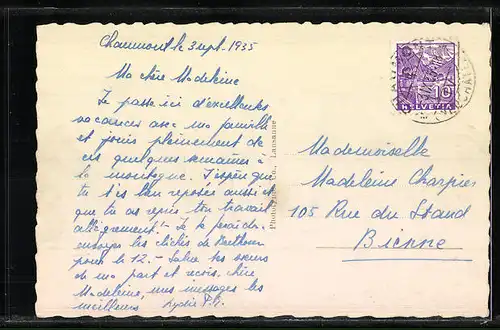 Chaumont le 3 sept. 1935
Ma chère Madeleine
Je passe ici d'excellentes
vacances avec ma famille
et jouis pleinement de
ces quelques semaines à
la montagne. J'espère que
tu t'es bien reposée aussi et
que tu as repris ton travail
allégrement! - Je te
envoyer les clichés de Berthoud
pour le 12. - Salue tes sœurs
de ma part et reçois, chère
Madeleine, mes messages les
meilleurs Lydie
Photographie Co., Lausanne
10
HELVETIA
Mademoiselle
Madeleine Charpier
105 Rue du Stand
Bienne